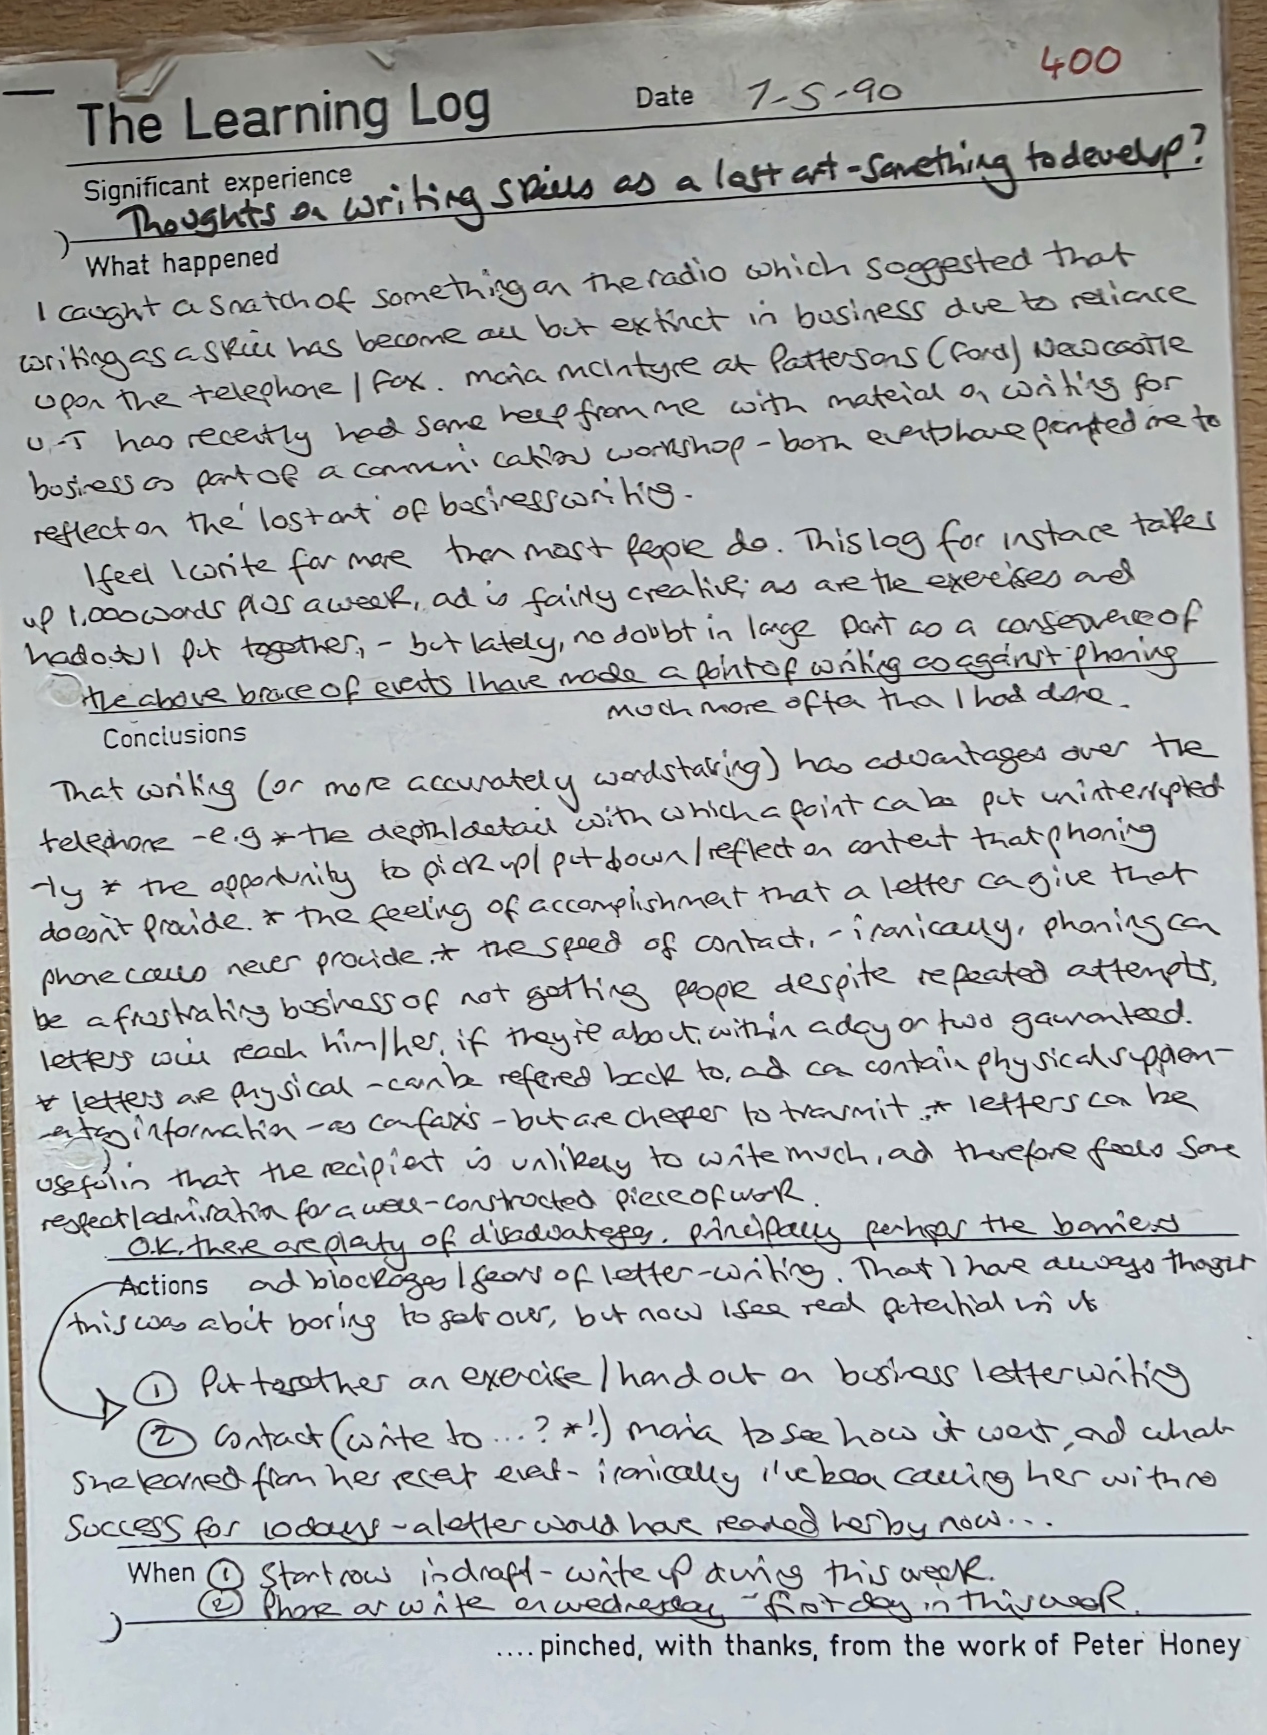 400
The Learning Log Date 7-5-90
Significant experience
Thoughts on writing skills as a lost art - something to develop?
What happened
I caught a snatch of something on the radio which suggested that
writing as a skill has become all but extinct in business due to reliance
upon the telephone / fax. Maria McIntyre at Pattersons (Ford) Newcastle
U-T has recently had some help from me with material on writing for
business as part of a communication workshop - both events have prompted me to
reflect on the 'lost art' of business writing.
I feel I write far more than most people do. This log for instance takes
up 1,000 words plus a week, and is fairly creative; as are the exercises and
handouts I put together, - but lately, no doubt in large part as a consequence of
the above brace of events I have made a point of writing as against phoning
much more often than I had done.
Conclusions
That writing (or more accurately wordstaring) has advantages over the
telephone - e.g * the depth/detail with which a point can be put uninterrupted
-ly * the opportunity to pick up/ put down/reflect on content that phoning
doesn't provide. * the feeling of accomplishment that a letter can give that
phone calls never provide. * the speed of contact, - ironically, phoning can
be a frustrating business of not getting people despite repeated attempts,
letters will reach him/her, if they're about, within a day or two gauranteed.
* letters are physical - can be refered back to, and can contain physical supplem-
entary information - as can faxs - but are cheper to transmit. * letters can be
useful in that the recipient is unlikely to write much, and therefore feels some
respect/admiration for a well-constructed piece of work.
O.K. there are plenty of disadvatages, principally perhaps the barriers
Actions and blockages / fears of letter-writing. That I have always thought
this was a bit boring to get over, but now I see real potential in it
① Put together an exercise / handout on business letter writing
② Contact (write to ...? *!) Maria to see how it went, and what
she learned from her recent event - ironically I've been calling her with no
success for 10 days - a letter would have reached her by now...
When ① Start now in draft - write up during this week.
② Phone or write on wednesday - first day in this week.
.... pinched, with thanks, from the work of Peter Honey